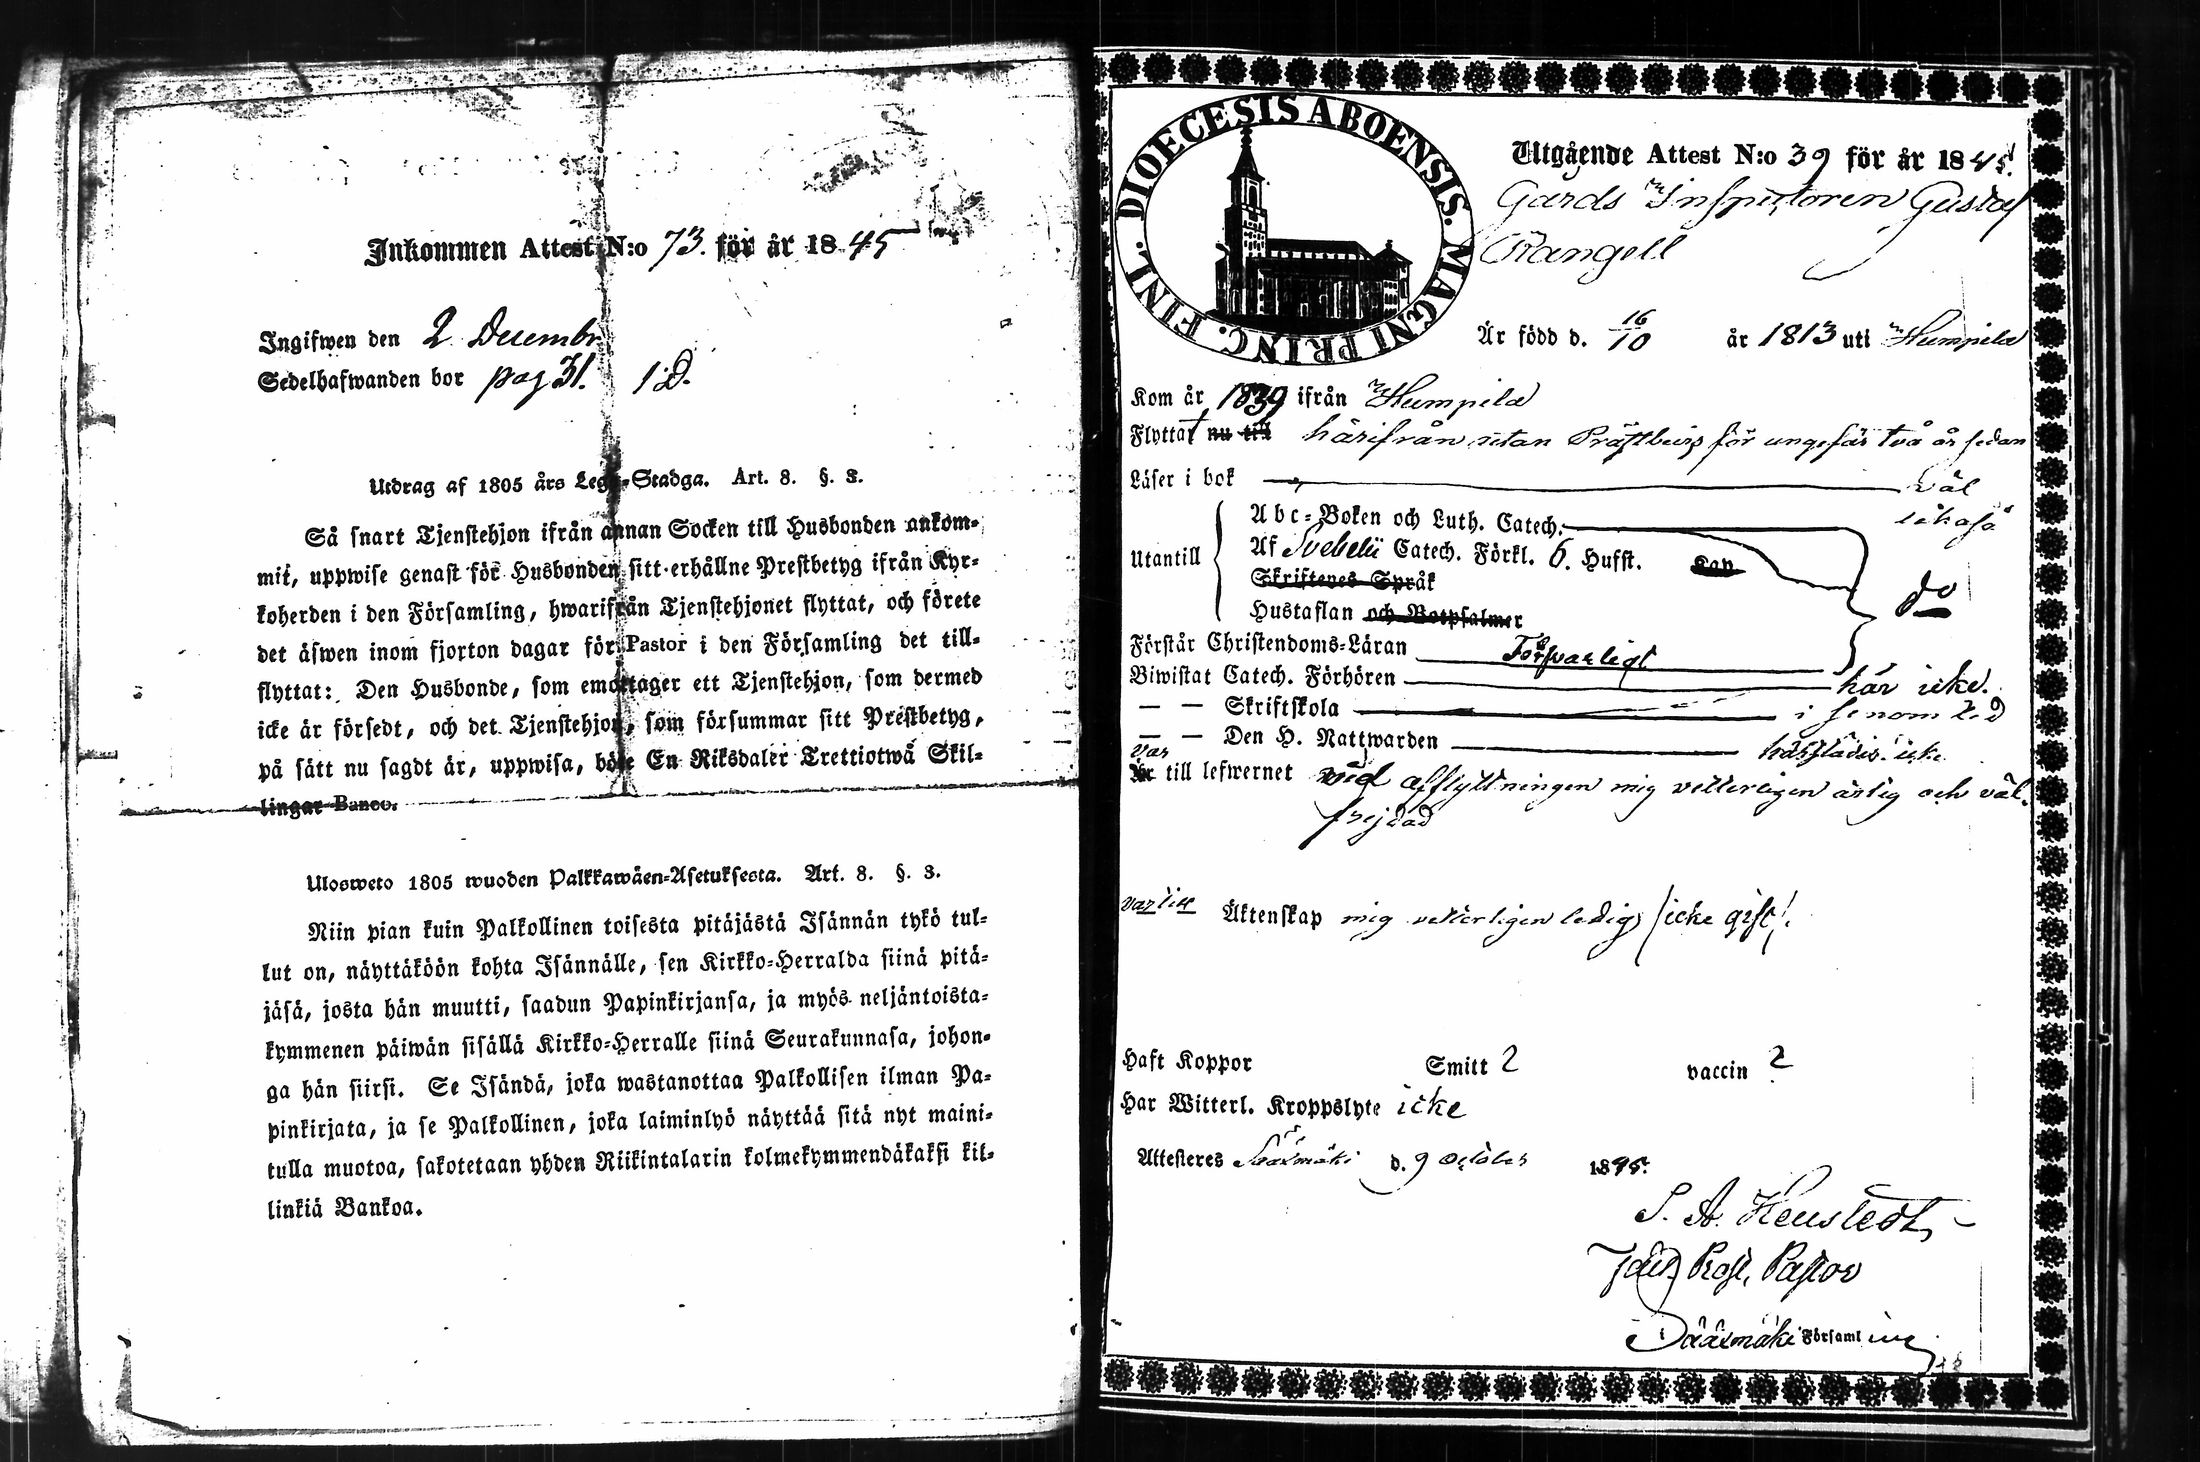 Inkommen Attest N:o 73. för år 1845
Ingifwen den 2 Decembr
Sedelhafwanden bor pag 31. 1 D.
Utdrag af 1805 års Lego-Stadga. Art. 8. §. 3.
Så snart Tjenstehjon ifrån annan Socken till Husbonden ankom-
mit, uppwise genast för Husbonden sitt erhållne Prestbetyg ifrån Kyr-
koherden i den Församling, hwarifrån Tjenstehjonet flyttat, och förete
det äfwen inom fjorton dagar för Pastor i den Församling det till-
flyttat: Den Husbonde, som emottager ett Tjenstehjon, som dermed
icke är försedt, och det Tjenstehjon, som försummar sitt Prestbetyg,
på sätt nu sagdt är, uppwisa, böte En Riksdaler Trettiotwå Skil-
lingar Banco.
Ulosweto 1805 wuoden Palkkawäen-Asetuksesta. Art. 8. §. 3.
Niin pian kuin Palkollinen toisesta pitäjästä Isännän tykö tul-
lut on, näyttäköön kohta Isännälle, sen Kirkko-Herralda siinä pitä-
jäsä, josta hän muutti, saadun Papinkirjansa, ja myös neljäntoista-
kymmenen päiwän sisällä Kirkko-Herralle siinä Seurakunnasa, johon-
ga hän siirsi. Se Isändä, joka wastanottaa Palkollisen ilman Pa-
pinkirjata, ja se Palkollinen, joka laiminlyö näyttää sitä nyt maini-
tulla muotoa, sakotetaan yhden Riikintalarin kolmekymmendäkaksi kil-
linkiä Bankoa.
DIOECESIS ABOENSIS. MAGNI PRINC. FINL.
Utgående Attest N:o 39 för år 1845.
Gårds Inspectoren Gustaf
Rangell
Är född d. 16/10 år 1813 uti Humpila
Kom år 1839 ifrån Humpila
Flyttat nu till härifrån utan Prästbevis för ungefär två år sedan
Läser i bok väl
Utantill
Abc-Boken och Luth. Catech. likaså
Af Svebelii Catech. Förkl. 6. Hufst. Kap
Skriftenes Språk
Hustaflan och Botpsalmer
do
Förstår Christendoms-Läran Försvarligt
Biwistat Catech. Förhören här icke.
— — Skriftskola
— — Den H. Nattwarden härstädes icke
var
Är till lefwernet vid afflyttningen mig vetterligen ärlig och väl-
frejdad
var till Äktenskap mig vetterligen ledig (icke gift).
Haft Koppor Smitt 2 vaccin 2
Har Witterl. Kroppslyte icke
Attesteres Sääxmäki d. 9 October 1845.
Prost, Pastor
Sääxmäki Församling